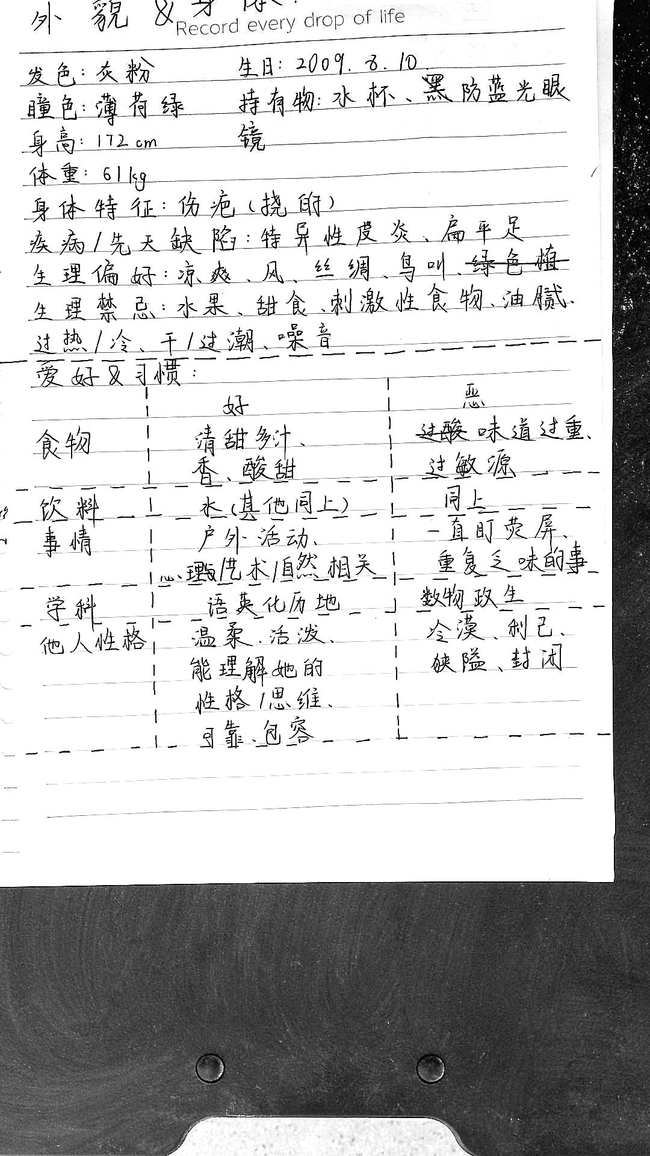 外貌 & 身体:
Record every drop of life
发色: 灰粉 生日: 2009.8.10
瞳色: 薄荷绿 持有物: 水杯、黑防蓝光眼
身高: 172cm 镜
体重: 61kg
身体特征: 伤疤(挠的)
疾病/先天缺陷: 特异性皮炎、扁平足
生理偏好: 凉爽、风、丝绸、鸟叫、绿色植
生理禁忌: 水果、甜食、刺激性食物、油腻、
过热/冷、干/过潮、噪音
爱好&习惯:
好 恶
食物 清甜多汁、 过酸味道过重、
香、酸甜 过敏源
饮料 水(其他同上) 同上
事情 户外活动、 一直盯荧屏、
心理/艺术/自然相关 重复乏味的事
学科 语英化历地 数物政生
他人性格 温柔、活泼、 冷漠、利己、
能理解她的 狭隘、封闭
性格/思维、
可靠、包容